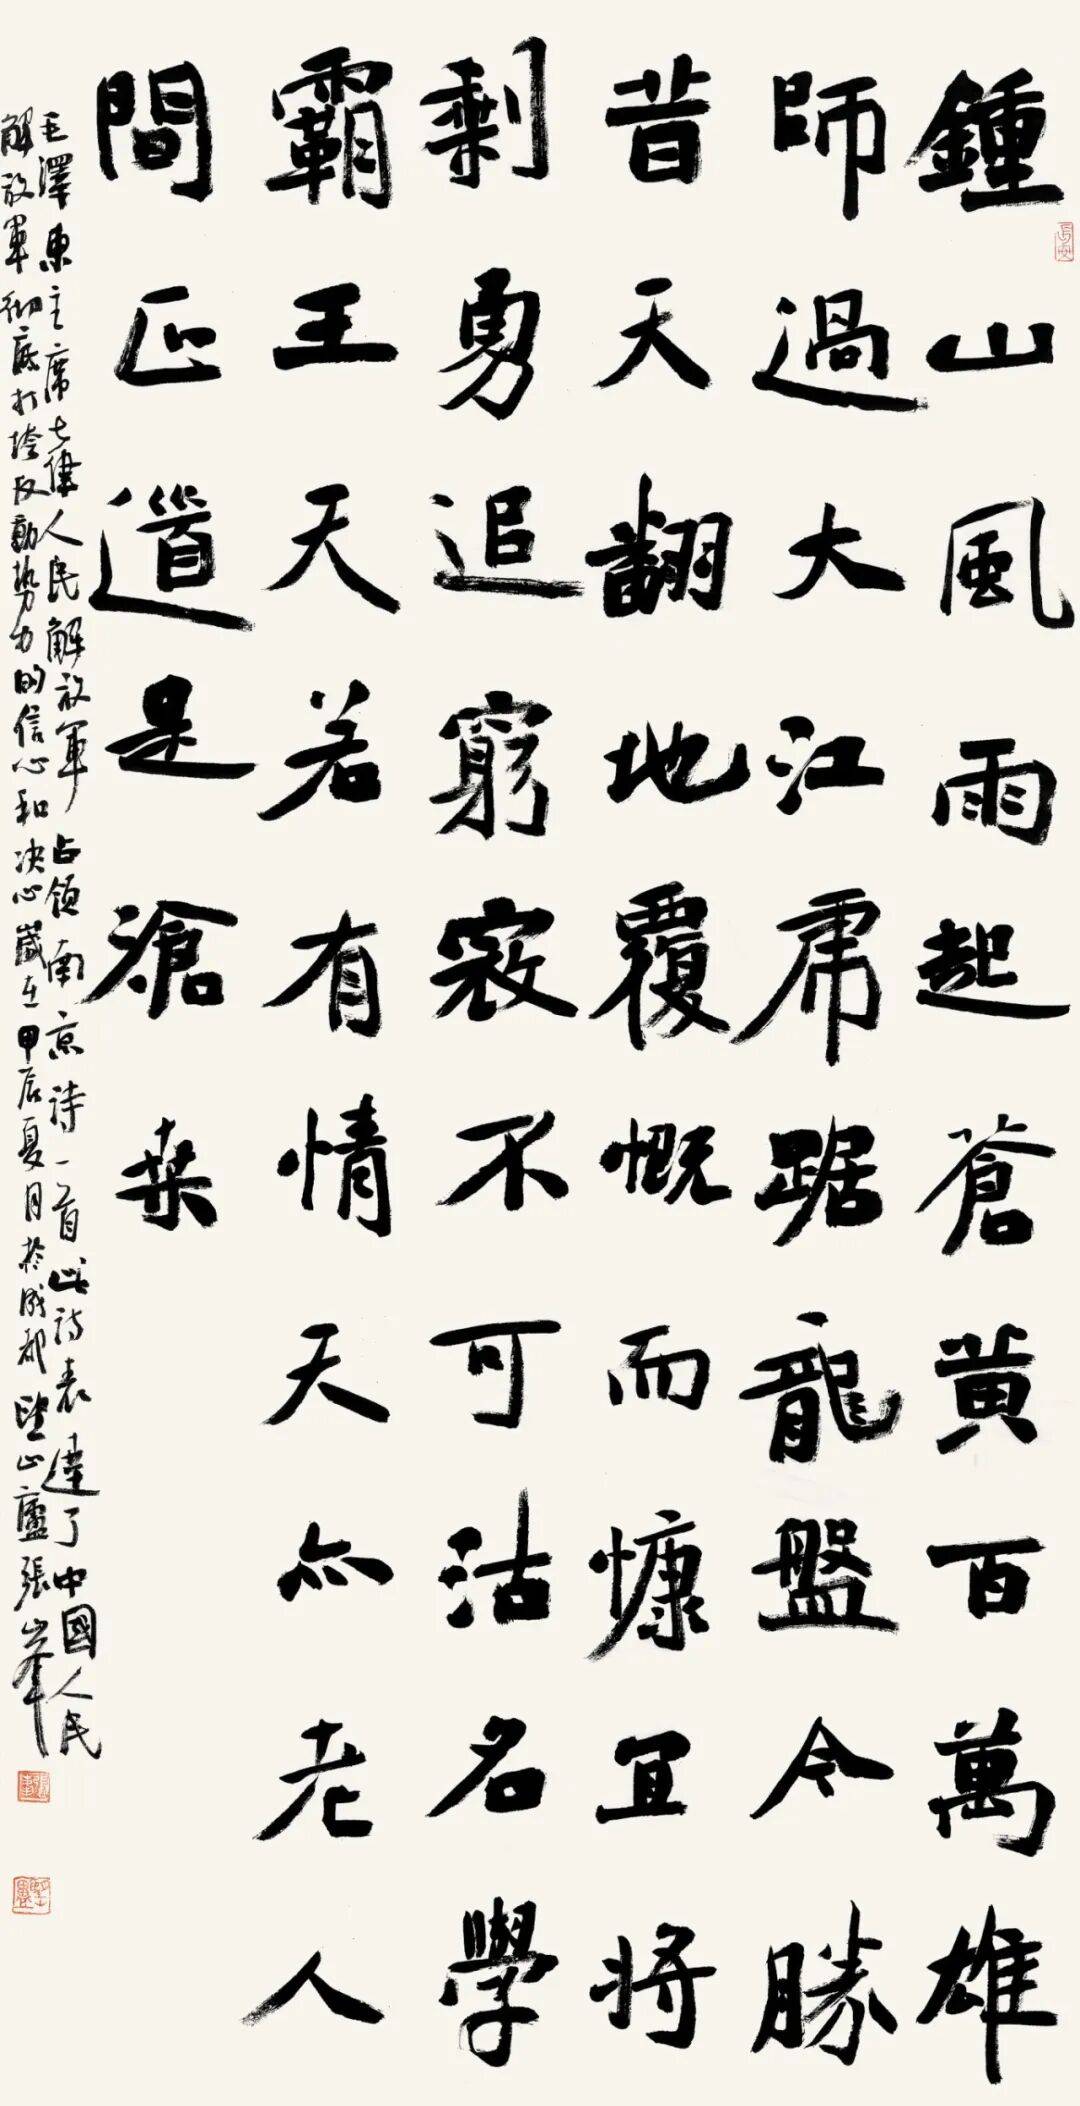 鍾山風雨起蒼黄百萬雄
師過大江虎踞龍盤今勝
昔天翻地覆慨而慷宜將
剩勇追窮寇不可沽名學
霸王天若有情天亦老人
間正道是滄桑
毛澤東主席七律人民解放軍占領南京詩一首此詩表達了中國人民
解放軍徹底打垮反動勢力的信心和决心歲在甲辰夏月於成都山廬張峯